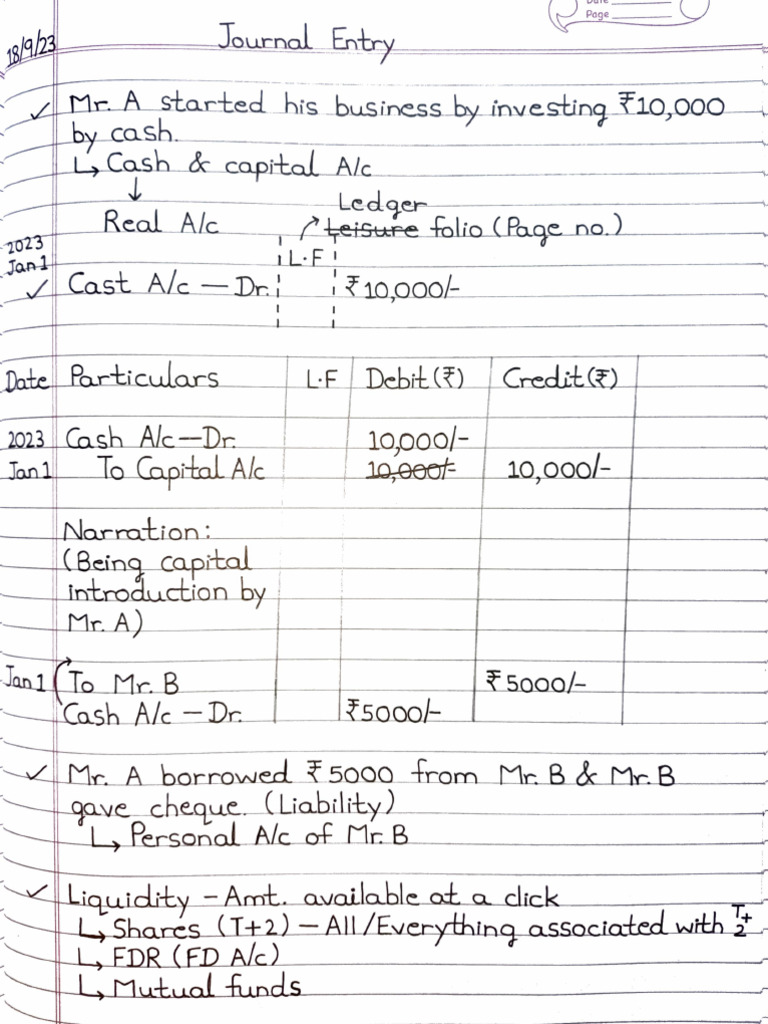 Date
Page
18/9/23
Journal Entry
Mr. A started his business by investing ₹10,000
by cash.
↳ Cash & capital A/c
↓
Real A/c
Ledger
↗ Leisure folio (Page no.)
2023
Jan 1
L.F
Cast A/c — Dr. ₹10,000/-
Date Particulars L.F Debit (₹) Credit (₹)
2023 Cash A/c — Dr. 10,000/-
Jan 1 To Capital A/c 10,000/- 10,000/-
Narration:
(Being capital
introduction by
Mr. A)
Jan 1 To Mr. B ₹5000/-
Cash A/c — Dr. ₹5000/-
✓ Mr. A borrowed ₹5000 from Mr. B & Mr. B
gave cheque. (Liability)
↳ Personal A/c of Mr. B
✓ Liquidity - Amt. available at a click
↳ Shares (T+2) — All/Everything associated with T+2
↳ FDR (FD A/c)
↳ Mutual funds